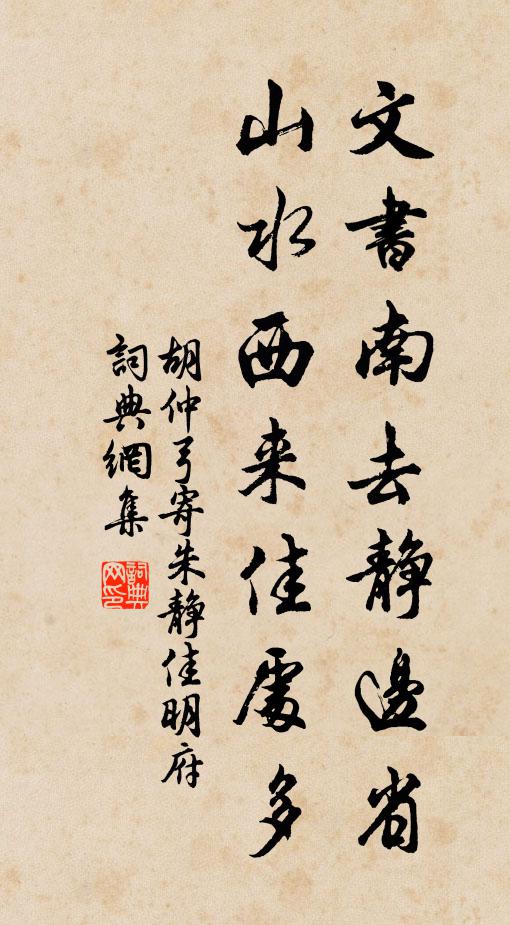 文書南去静邊省
山水西来佳處多
胡仲弓寄朱静佳明府
詞典網集
詞典網印